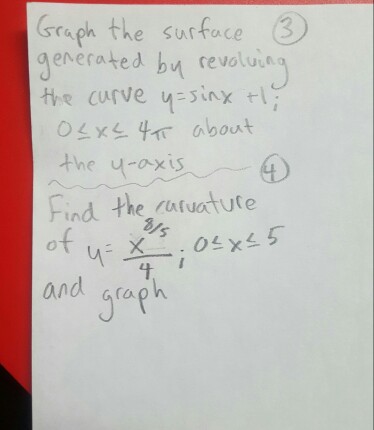 Graph the surface ③
generated by revolving
the curve y=sinx +1;
0≤x≤ 4π about
the y-axis
④
Find the curvature
of y= x^{8/5}/4 ; 0≤x≤5
and graph